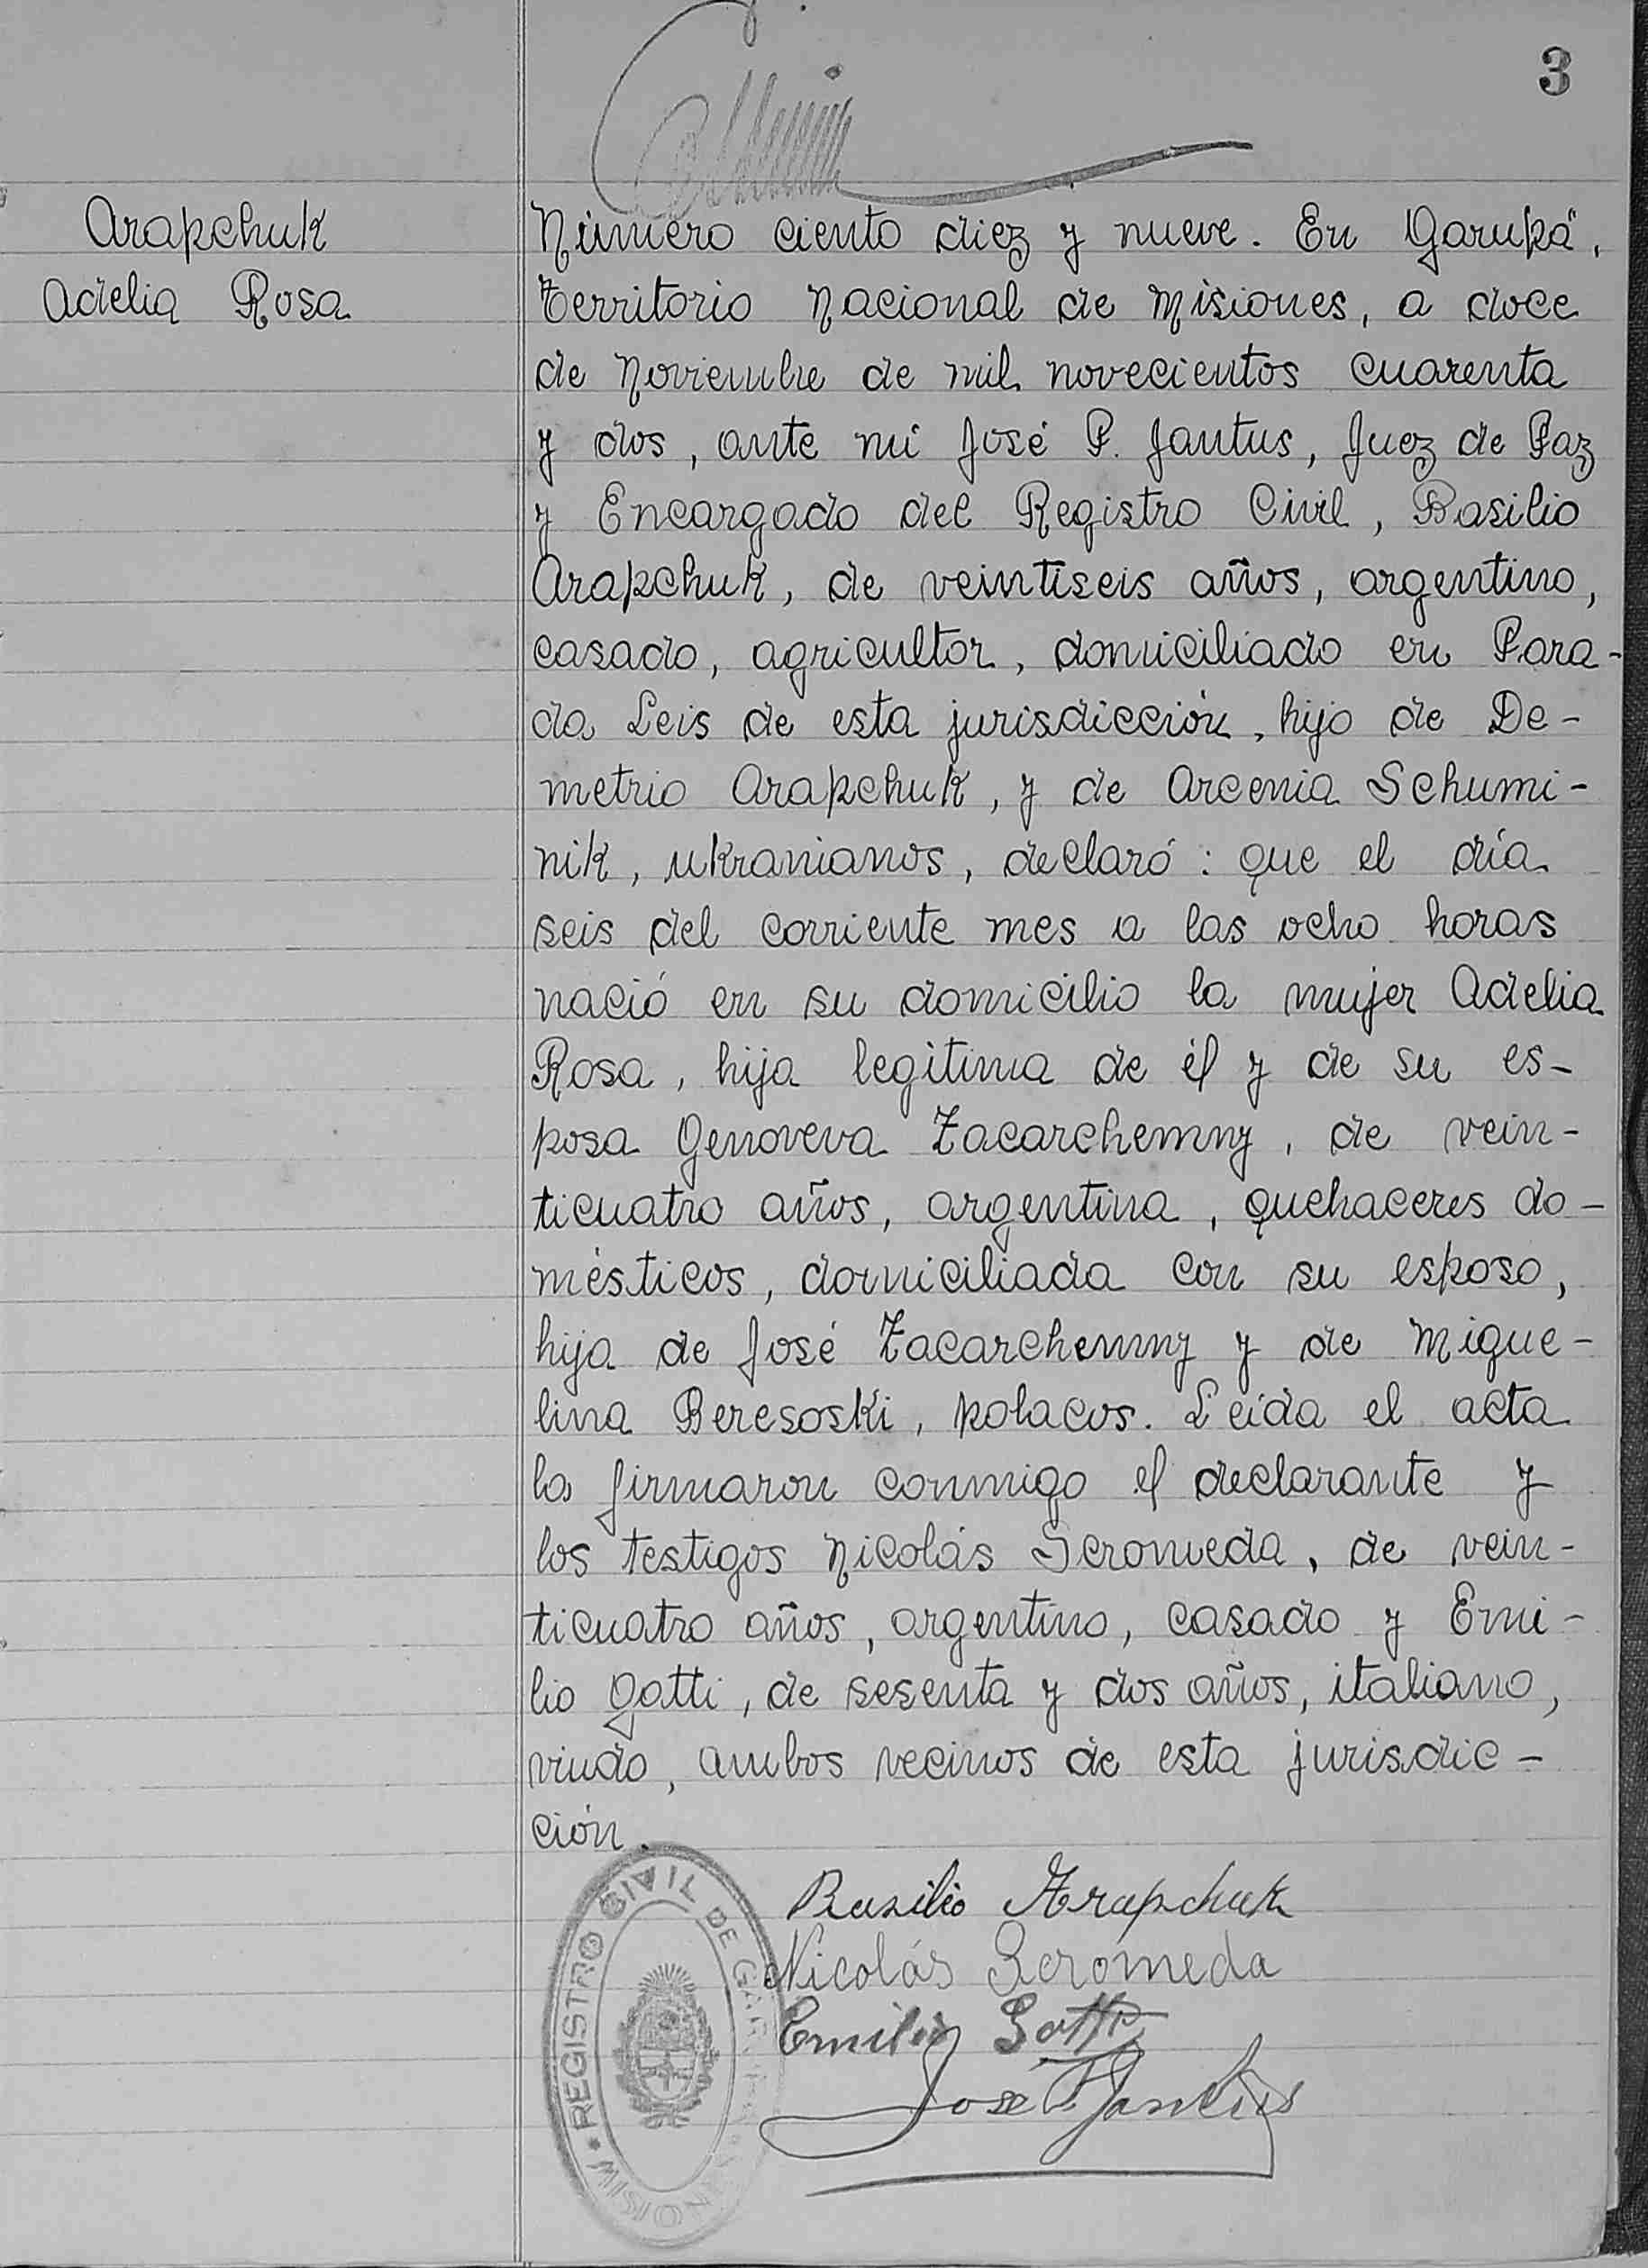 3
Arapchuk
Adelia Rosa
Número ciento diez y nueve. En Garupá,
Territorio Nacional de Misiones, a doce
de Noviembre de mil novecientos cuarenta
y dos, ante mi José P. Jantus, Juez de Paz
y Encargado del Registro Civil, Basilio
Arapchuk, de veintiseis años, argentino,
casado, agricultor, domiciliado en Para-
da Leis de esta jurisdicción, hijo de De-
metrio Arapchuk, y de Arcenia Schumi-
nik, ukranianos, declaró: que el día
seis del corriente mes a las ocho horas
nació en su domicilio la mujer Adelia
Rosa, hija legítima de él y de su es-
posa Genoveva Zacarchemny, de vein-
ticuatro años, argentina, quehaceres do-
mésticos, domiciliada con su esposo,
hija de José Zacarchemny y de Mique-
lina Beresoski, polacos. Leída el acta
la firmaron conmigo el declarante y
los testigos Nicolás Scromeda, de vein-
ticuatro años, argentino, casado y Emi-
lio Gatti, de sesenta y dos años, italiano,
viudo, ambos vecinos de esta jurisdic-
ción.
Basilio Arapchuk
Nicolás Scromeda
Emilio Gatti
José P. Jantus
REGISTRO CIVIL DE GARUPA * MISIONES